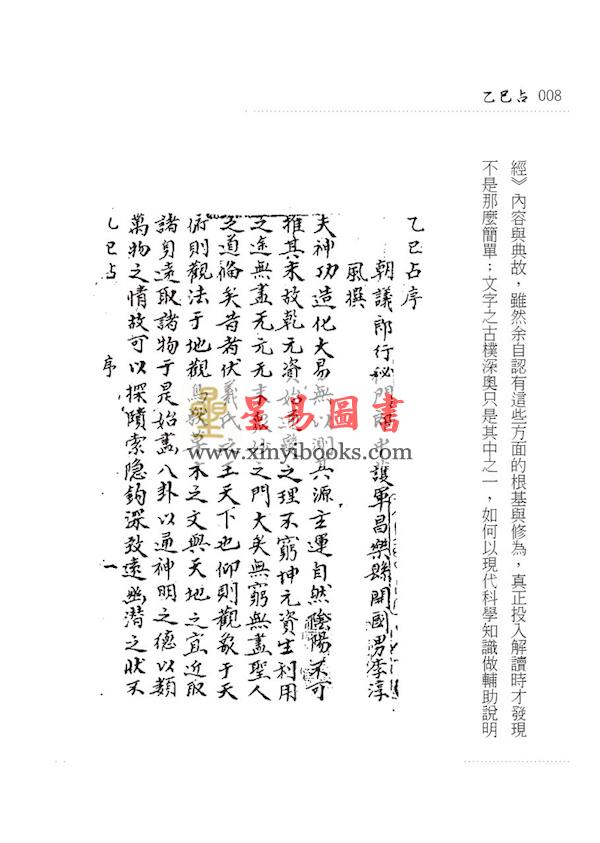 乙巳占 008
經》內容與典故，雖然余自認有這些方面的根基與修為，真正投入解讀時才發現
不是那麼簡單；文字之古樸深奧只是其中之一，如何以現代科學知識做輔助說明
乙巳占序
朝議郎行秘閣郎中護軍昌樂縣開國男李淳
風撰
夫神功造化大易無以測其源玄運自然陰陽不可
推其末故乾元資始通變之理不窮坤元資生利用
之途無盡无元无之門大矣無窮無盡聖人
之道備矣昔者伏羲氏之王天下也仰則觀象于天
俯則觀法于地觀鳥獸草木之文與天地之宜近取
諸身遠取諸物于是始畫八卦以通神明之德以類
萬物之情故可以探賾索隱鈎深致遠幽潛之狀不
乙巳占 序 一
星易圖書
www.xinyibooks.com